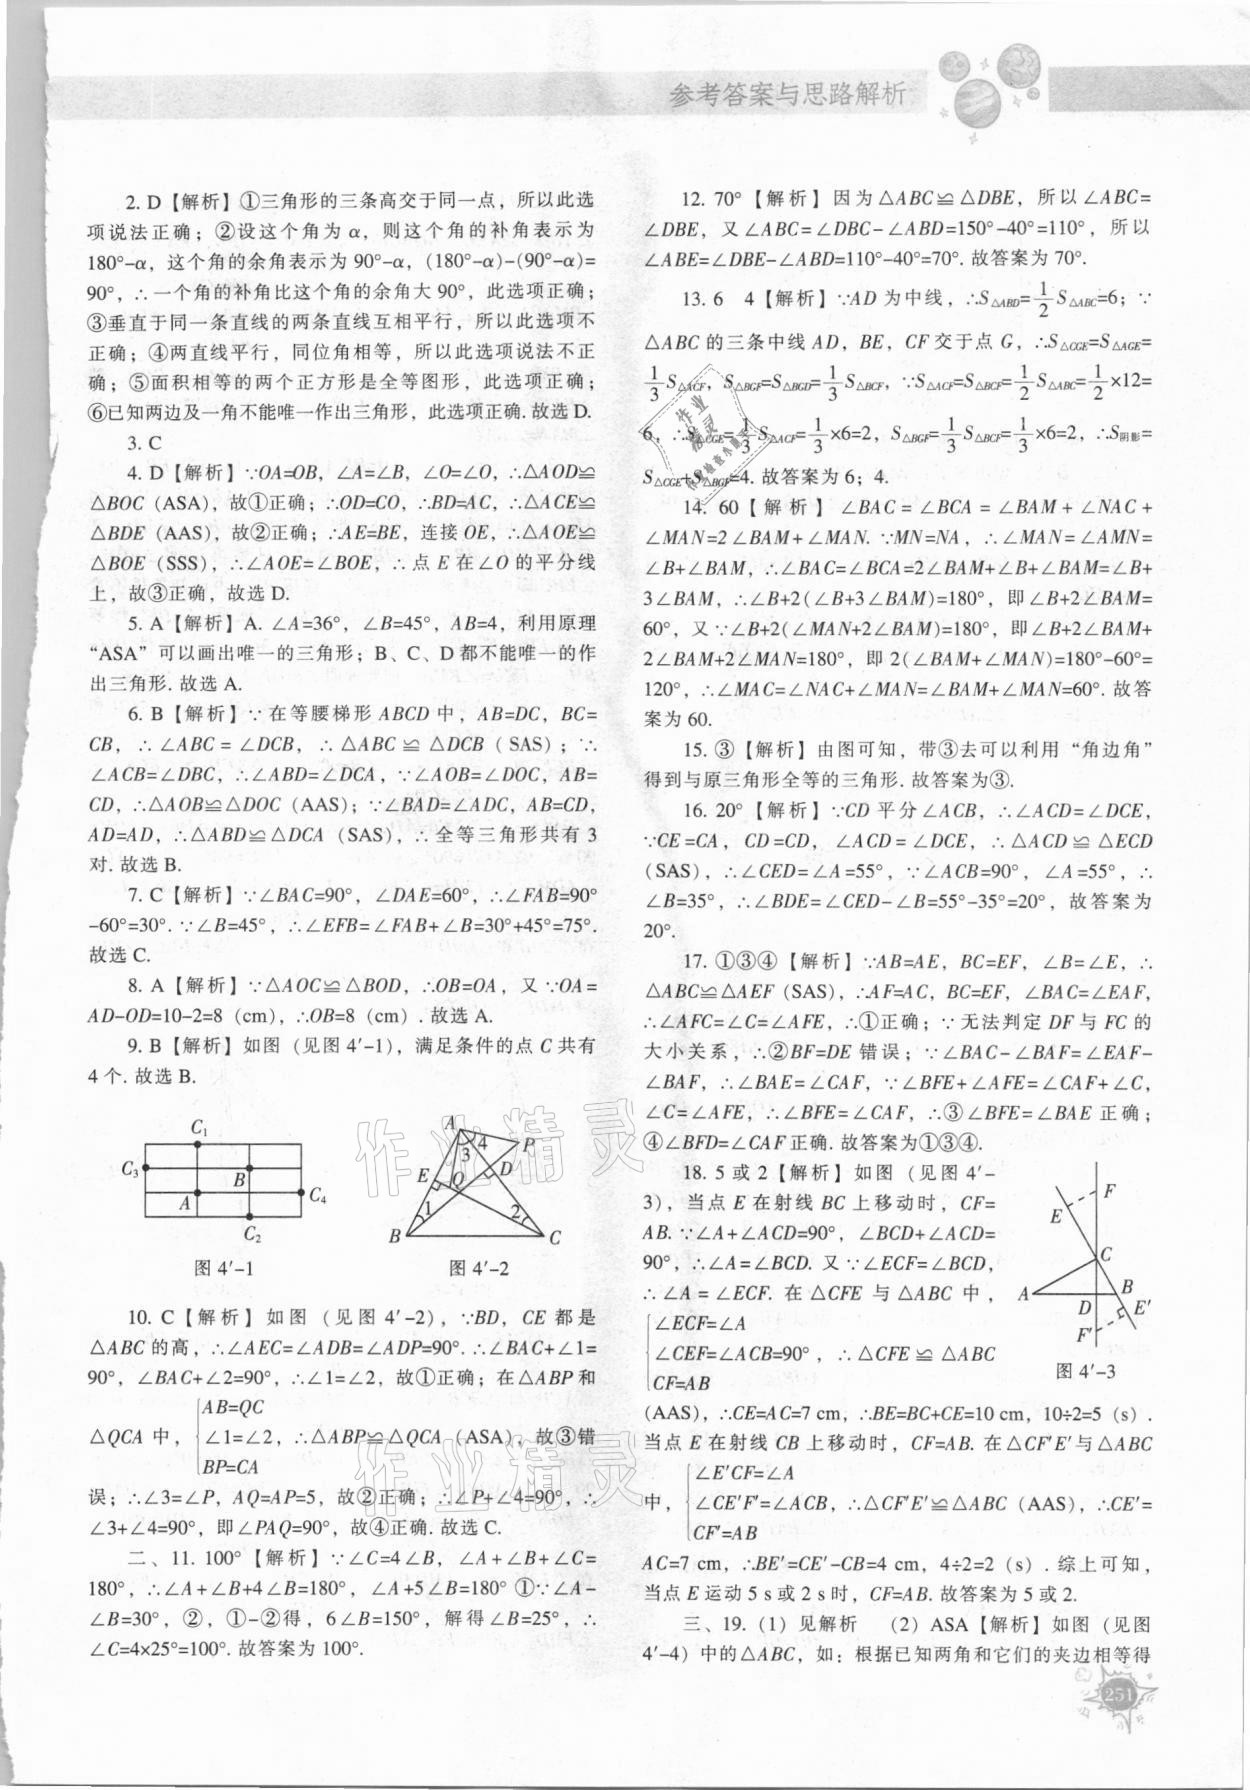 参考答案与思路解析
2. D【解析】①三角形的三条高交于同一点，所以此选
项说法正确；②设这个角为α，则这个角的补角表示为
180°-α，这个角的余角表示为90°-α，(180°-α)-(90°-α)=
90°，∴一个角的补角比这个角的余角大90°，此选项正确；
③垂直于同一条直线的两条直线互相平行，所以此选项不
正确；④两直线平行，同位角相等，所以此选项说法不正
确；⑤面积相等的两个正方形是全等图形，此选项正确；
⑥已知两边及一角不能唯一作出三角形，此选项正确.故选D.
3. C
4. D【解析】∵OA=OB，∠A=∠B，∠O=∠O，∴△AOD≌
△BOC（ASA），故①正确；∴OD=CO，∴BD=AC，∴△ACE≌
△BDE（AAS），故②正确；∴AE=BE，连接OE，∴△AOE≌
△BOE（SSS），∴∠AOE=∠BOE，∴点E在∠O的平分线
上，故③正确，故选D.
5. A【解析】A. ∠A=36°，∠B=45°，AB=4，利用原理
“ASA”可以画出唯一的三角形；B、C、D都不能唯一的作
出三角形.故选A.
6. B【解析】∵在等腰梯形ABCD中，AB=DC，BC=
CB，∴∠ABC=∠DCB，∴△ABC≌△DCB（SAS）；∵
∠ACB=∠DBC，∴∠ABD=∠DCA，∵∠AOB=∠DOC，AB=
CD，∴△AOB≌△DOC（AAS）；∵∠BAD=∠ADC，AB=CD，
AD=AD，∴△ABD≌△DCA（SAS），∴全等三角形共有3
对.故选B.
7. C【解析】∵∠BAC=90°，∠DAE=60°，∴∠FAB=90°
-60°=30°. ∵∠B=45°，∴∠EFB=∠FAB+∠B=30°+45°=75°.
故选C.
8. A【解析】∵△AOC≌△BOD，∴OB=OA，又∵OA=
AD-OD=10-2=8（cm），∴OB=8（cm）.故选A.
9. B【解析】如图（见图4′-1），满足条件的点C共有
4个.故选B.
C₁
C₃
B
A
C₄
C₂
图4′-1
A
4
3
P
E
Q
D
1
2
B
C
图4′-2
10. C【解析】如图（见图4′-2），∵BD，CE都是
△ABC的高，∴∠AEC=∠ADB=∠ADP=90°. ∴∠BAC+∠1=
90°，∠BAC+∠2=90°，∴∠1=∠2，故①正确；在△ABP和
AB=QC
△QCA中，∠1=∠2，∴△ABP≌△QCA（ASA），故③错
BP=CA
误；∴∠3=∠P，AQ=AP=5，故②正确；∴∠P+∠4=90°，∴
∠3+∠4=90°，即∠PAQ=90°，故④正确.故选C.
二、11. 100°【解析】∵∠C=4∠B，∠A+∠B+∠C=
180°，∴∠A+∠B+4∠B=180°，∠A+5∠B=180° ①∵∠A-
∠B=30°，②，①-②得，6∠B=150°，解得∠B=25°，∴
∠C=4×25°=100°. 故答案为100°.
12. 70°【解析】因为△ABC≌△DBE，所以∠ABC=
∠DBE，又∠ABC=∠DBC-∠ABD=150°-40°=110°，所以
∠ABE=∠DBE-∠ABD=110°-40°=70°. 故答案为70°.
13. 6 4【解析】∵AD为中线，∴S△ABD=1/2 S△ABC=6；∵
△ABC的三条中线AD，BE，CF交于点G，∴S△CGE=S△AGE=
1/3 S△ACF，S△BGF=S△BGD=1/3 S△BCF，∵S△ACF=S△BCF=1/2 S△ABC=1/2×12=
6，∴S△CGE=1/3 S△ACF=1/3×6=2，S△BGF=1/3 S△BCF=1/3×6=2，∴S阴影=
S△CGE+S△BGF=4. 故答案为6；4.
14. 60【解析】∠BAC=∠BCA=∠BAM+∠NAC+
∠MAN=2∠BAM+∠MAN. ∵MN=NA，∴∠MAN=∠AMN=
∠B+∠BAM，∴∠BAC=∠BCA=2∠BAM+∠B+∠BAM=∠B+
3∠BAM，∴∠B+2(∠B+3∠BAM)=180°，即∠B+2∠BAM=
60°，又∵∠B+2(∠MAN+2∠BAM)=180°，即∠B+2∠BAM+
2∠BAM+2∠MAN=180°，即2(∠BAM+∠MAN)=180°-60°=
120°，∴∠MAC=∠NAC+∠MAN=∠BAM+∠MAN=60°. 故答
案为60.
15. ③【解析】由图可知，带③去可以利用“角边角”
得到与原三角形全等的三角形.故答案为③.
16. 20°【解析】∵CD平分∠ACB，∴∠ACD=∠DCE，
∵CE=CA，CD=CD，∠ACD=∠DCE，∴△ACD≌△ECD
(SAS)，∴∠CED=∠A=55°，∵∠ACB=90°，∠A=55°，∴
∠B=35°，∴∠BDE=∠CED-∠B=55°-35°=20°，故答案为
20°.
17. ①③④【解析】∵AB=AE，BC=EF，∠B=∠E，∴
△ABC≌△AEF（SAS），∴AF=AC，BC=EF，∠BAC=∠EAF，
∴∠AFC=∠C=∠AFE，∴①正确；∵无法判定DF与FC的
大小关系，∴②BF=DE错误；∵∠BAC-∠BAF=∠EAF-
∠BAF，∴∠BAE=∠CAF，∵∠BFE+∠AFE=∠CAF+∠C，
∠C=∠AFE，∴∠BFE=∠CAF，∴③∠BFE=∠BAE正确；
④∠BFD=∠CAF正确.故答案为①③④.
18. 5或2【解析】如图（见图4′-
3），当点E在射线BC上移动时，CF=
AB. ∵∠A+∠ACD=90°，∠BCD+∠ACD=
90°，∴∠A=∠BCD. 又∵∠ECF=∠BCD，
∴∠A=∠ECF. 在△CFE与△ABC中，
∠ECF=∠A
∠CEF=∠ACB=90°，∴△CFE≌△ABC
CF=AB
F
E
C
A
B
D
E′
F′
图4′-3
(AAS)，∴CE=AC=7 cm，∴BE=BC+CE=10 cm，10÷2=5（s）.
当点E在射线CB上移动时，CF=AB. 在△CF′E′与△ABC
∠E′CF=∠A
中，∠CE′F′=∠ACB，∴△CF′E′≌△ABC（AAS），∴CE′=
CF′=AB
AC=7 cm，∴BE′=CE′-CB=4 cm，4÷2=2（s）.综上可知，
当点E运动5 s或2 s时，CF=AB. 故答案为5或2.
三、19.（1）见解析 （2）ASA【解析】如图（见图
4′-4）中的△ABC，如：根据已知两角和它们的夹边相等得
251
作业精灵
作业精灵